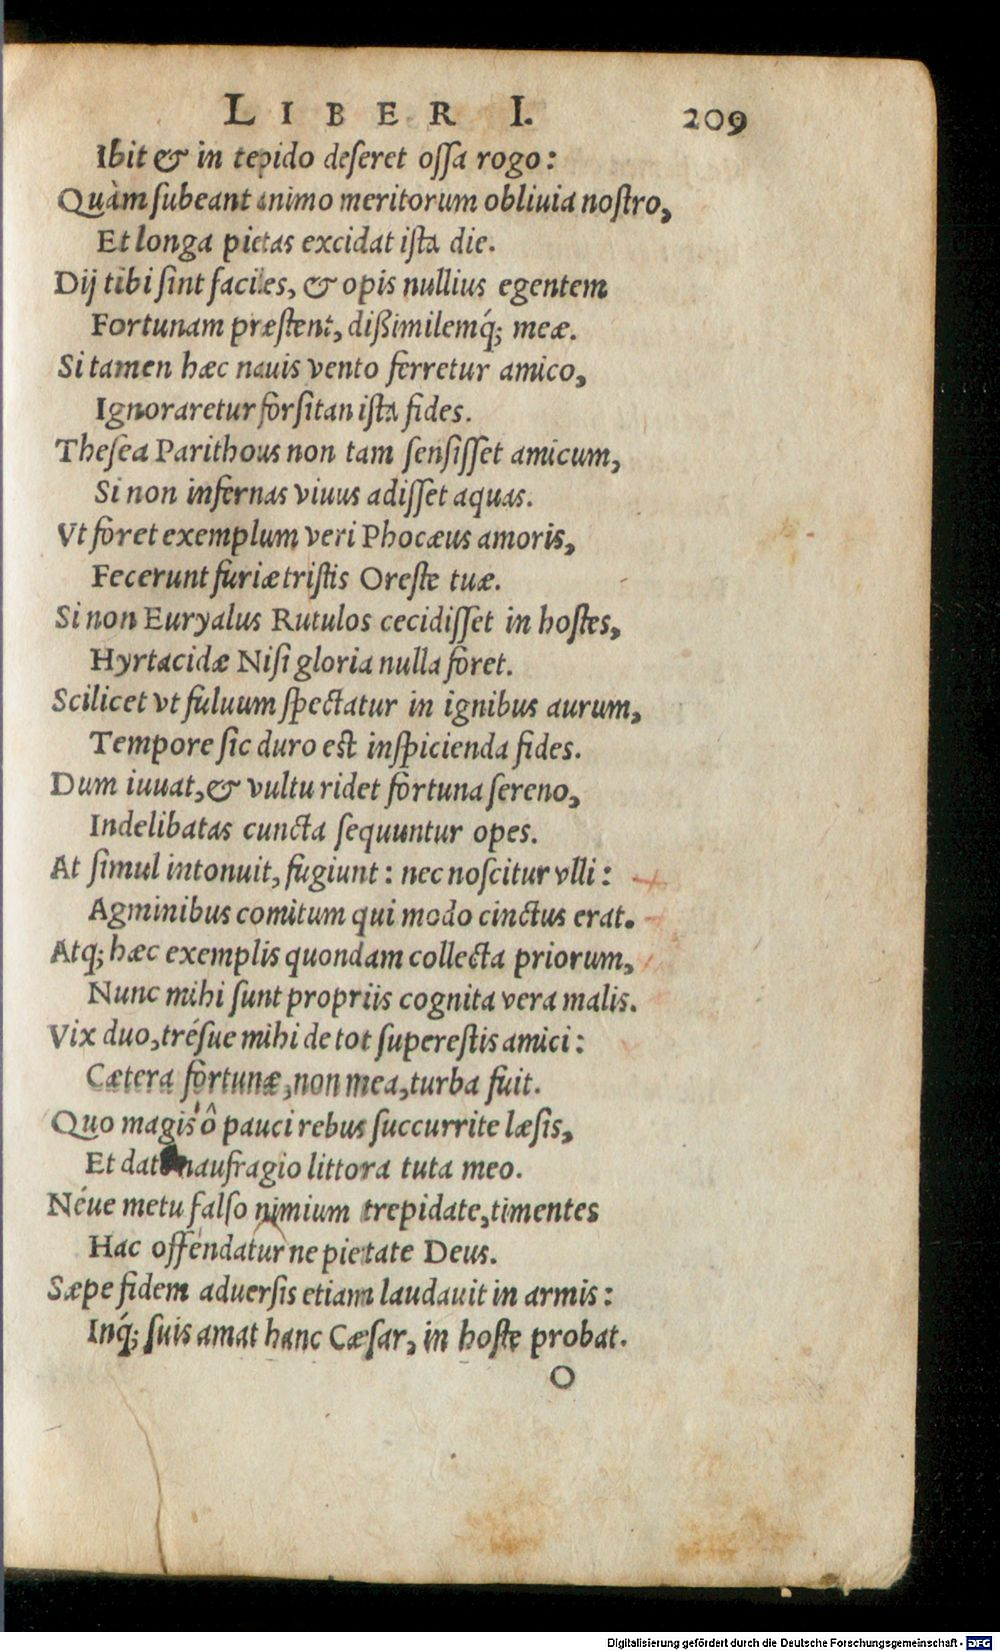 LIBER I. 209
Ibit & in tepido deseret ossa rogo:
Quàm subeant animo meritorum obliuia nostro,
Et longa pietas excidat ista die.
Dij tibi sint faciles, & opis nullius egentem
Fortunam præstent, dißimilemq́; meæ.
Si tamen hæc nauis vento ferretur amico,
Ignoraretur forsitan ista fides.
Thesea Parithous non tam sensisset amicum,
Si non infernas viuus adisset aquas.
Vt foret exemplum veri Phocæus amoris,
Fecerunt furiæ tristis Oreste tuæ.
Si non Euryalus Rutulos cecidisset in hostes,
Hyrtacidæ Nisi gloria nulla foret.
Scilicet vt fuluum spectatur in ignibus aurum,
Tempore sic duro est inspicienda fides.
Dum iuuat, & vultu ridet fortuna sereno,
Indelibatas cuncta sequuntur opes.
At simul intonuit, fugiunt: nec noscitur vlli:
Agminibus comitum qui modo cinctus erat.
Atq; hæc exemplis quondam collecta priorum,
Nunc mihi sunt propriis cognita vera malis.
Vix duo, trésue mihi de tot superestis amici:
Cætera fortunæ, non mea, turba fuit.
Quo magis ô pauci rebus succurrite læsis,
Et date naufragio littora tuta meo.
Néue metu falso nimium trepidate, timentes
Hac offendatur ne pietate Deus.
Sæpe fidem aduersis etiam laudauit in armis:
Inq́; suis amat hanc Cæsar, in hoste probat.
O
Digitalisierung gefördert durch die Deutsche Forschungsgemeinschaft - DFG